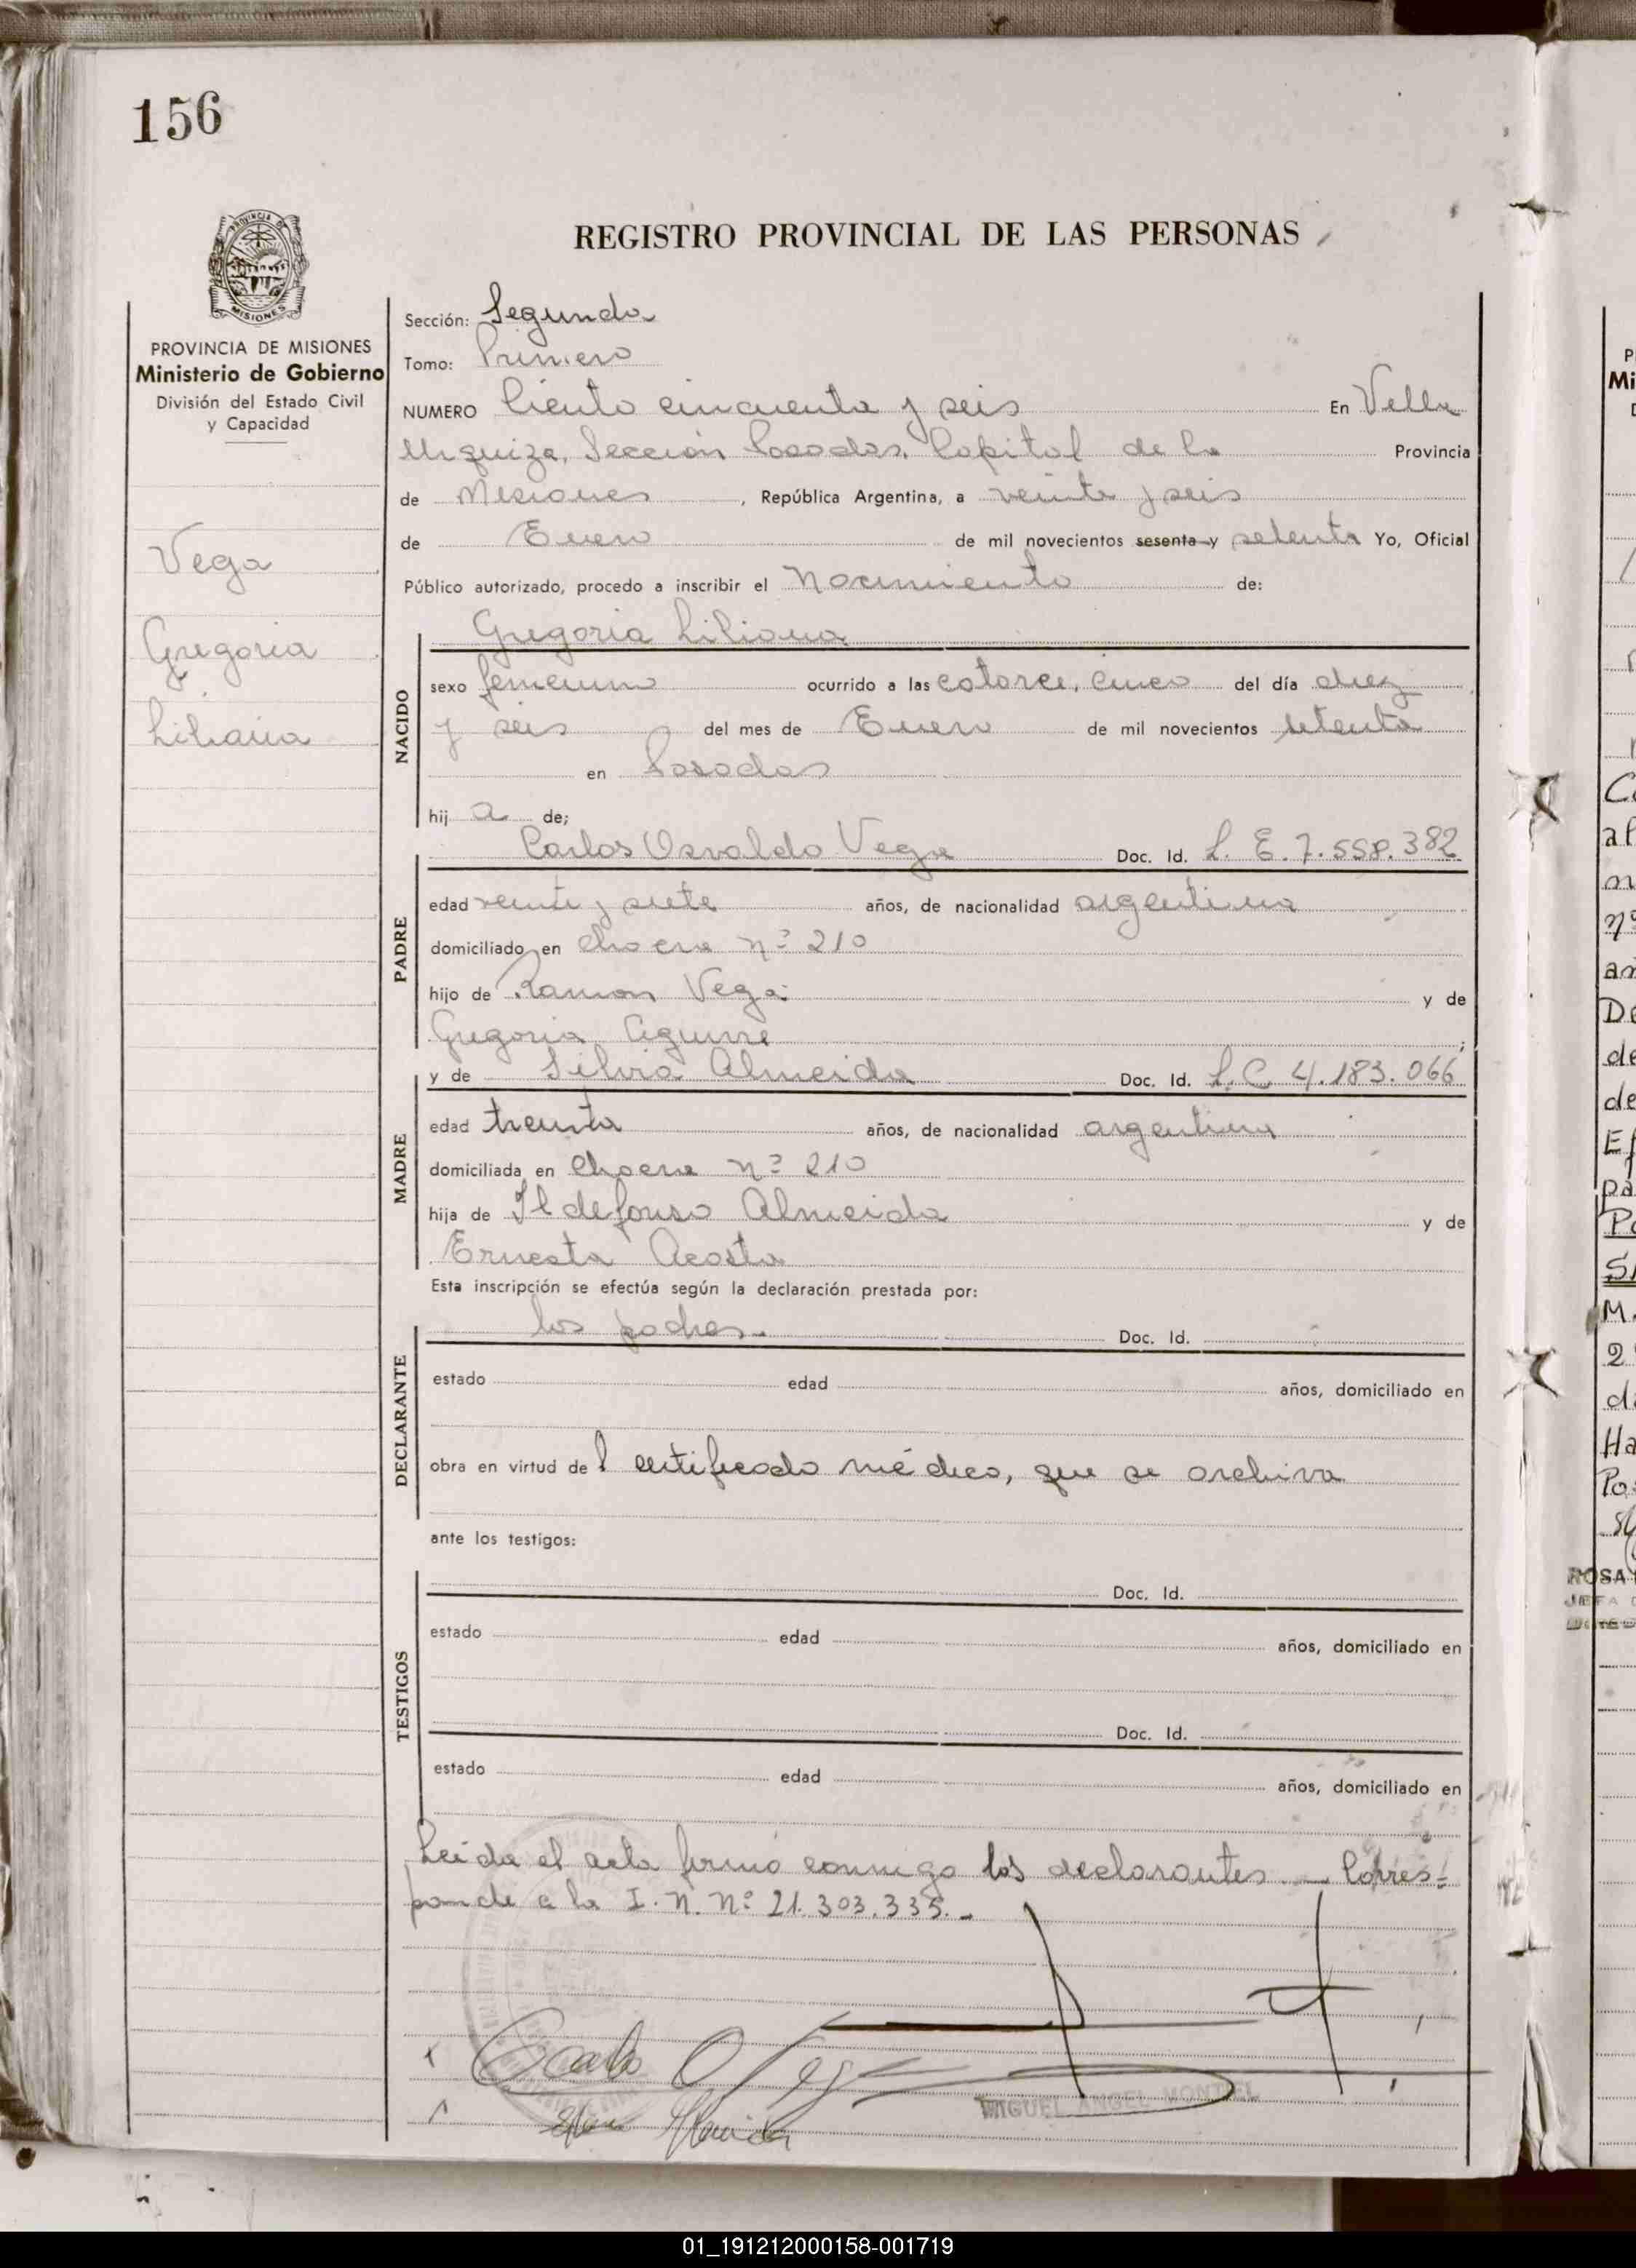 156
REGISTRO PROVINCIAL DE LAS PERSONAS
PROVINCIA DE
MISIONES
PROVINCIA DE MISIONES
Ministerio de Gobierno
División del Estado Civil
y Capacidad
Vega
Gregoria
Liliana
Sección: Segunda
Tomo: Primero
NUMERO Ciento cincuenta y seis En Villa
Urquiza, Sección Posadas, Capital de la Provincia
de Misiones, República Argentina, a veinte y seis
de Enero de mil novecientos sesenta y setenta Yo, Oficial
Público autorizado, procedo a inscribir el Nacimiento de:
Gregoria Liliana
NACIDO
sexo femenino ocurrido a las catorce, cinco del día diez
y seis del mes de Enero de mil novecientos setenta
en Posadas
hij a de;
Carlos Osvaldo Vega Doc. Id. L. E. 7.558.382
PADRE
edad veinte y siete años, de nacionalidad argentina
domiciliado en chacra nº 210
hijo de Ramon Vega y de
Gregoria Aguirre;
y de Silvia Almeida Doc. Id. L.C 4.183.066
MADRE
edad treinta años, de nacionalidad argentina
domiciliada en chacra nº 210
hija de Ildefonso Almeida y de
Ernesta Acosta
Esta inscripción se efectúa según la declaración prestada por:
los padres.- Doc. Id.
DECLARANTE
estado edad años, domiciliado en
obra en virtud de l certificado médico, que se archiva
ante los testigos:
TESTIGOS
Doc. Id.
estado edad años, domiciliado en
Doc. Id.
estado edad años, domiciliado en
Leida el acta firmó conmigo los declarantes.- Corres=
ponde a la I. N. Nº 21.303.335.-
Carlos O Vega
MIGUEL ANGEL MONTIEL
Almeida
P
Mi
C
al
m
nº
an
De
de
de
Ef
pa
Po
M.
2
d
Ha
Pos
ROSA
JEFA D
01_191212000158-001719